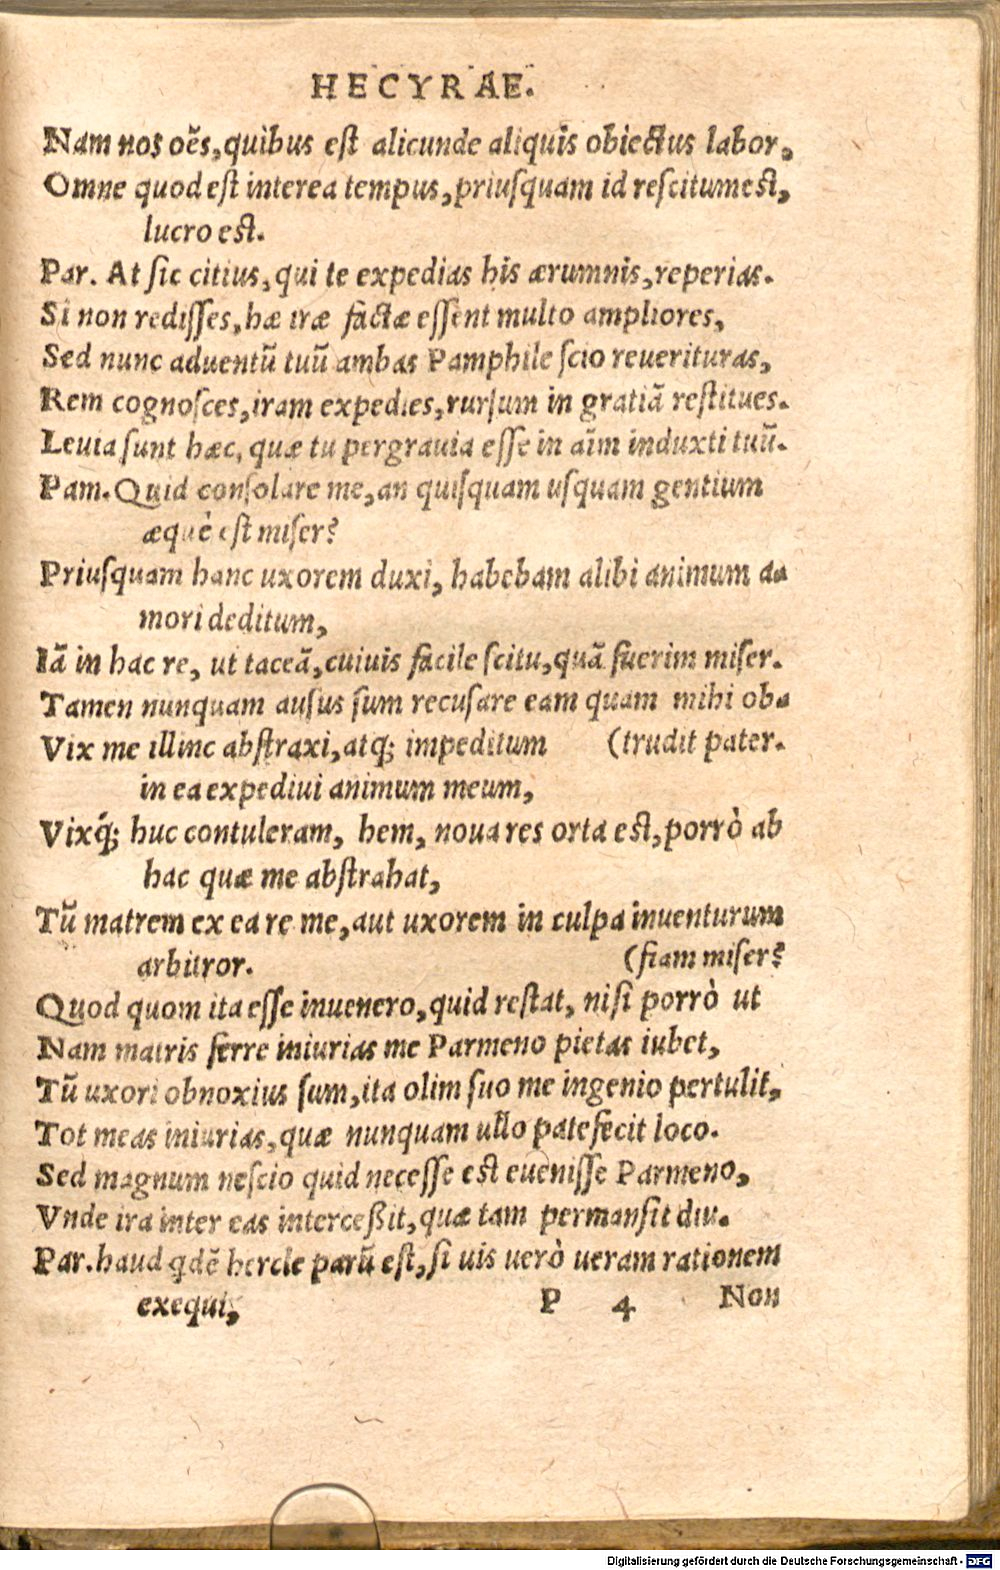 HECYRAE.
Nam nos oẽs, quibus est alicunde aliquis obiectus labor,
Omne quod est interea tempus, priusquam id rescitum est,
lucro est.
Par. At sic citius, qui te expedias his ærumnis, reperias.
Si non redisses, hæ iræ factæ essent multo ampliores,
Sed nunc aduentũ tuũ ambas Pamphile scio reuerituras,
Rem cognosces, iram expedies, rursum in gratiã restitues.
Leuia sunt hæc, quæ tu pergrauia esse in aĩm induxti tuũ.
Pam. Quid consolare me, an quisquam usquam gentium
æquè est miser?
Priusquam hanc uxorem duxi, habebam alibi animum a-
mori deditum,
Iã in hac re, ut taceã, cuiuis facile scitu, quã fuerim miser.
Tamen nunquam ausus sum recusare eam quam mihi ob-
Vix me illinc abstraxi, atq; impeditum (trudit pater.
in ea expediui animum meum,
Vixq́; huc contuleram, hem, noua res orta est, porrò ab
hac quæ me abstrahat,
Tũ matrem ex ea re me, aut uxorem in culpa inuenturum
arbitror. (fiam miser?
Quod quom ita esse inuenero, quid restat, nisi porrò ut
Nam matris ferre iniurias me Parmeno pietas iubet,
Tũ uxori obnoxius sum, ita olim suo me ingenio pertulit,
Tot meas iniurias, quæ nunquam ullo patefecit loco.
Sed magnum nescio quid necesse est euenisse Parmeno,
Vnde ira inter eas interceßit, quæ tam permansit diu.
Par. haud qdẽ hercle parũ est, si uis uerò ueram rationem
exequi, P 4 Non
Digitalisierung gefördert durch die Deutsche Forschungsgemeinschaft - DFG